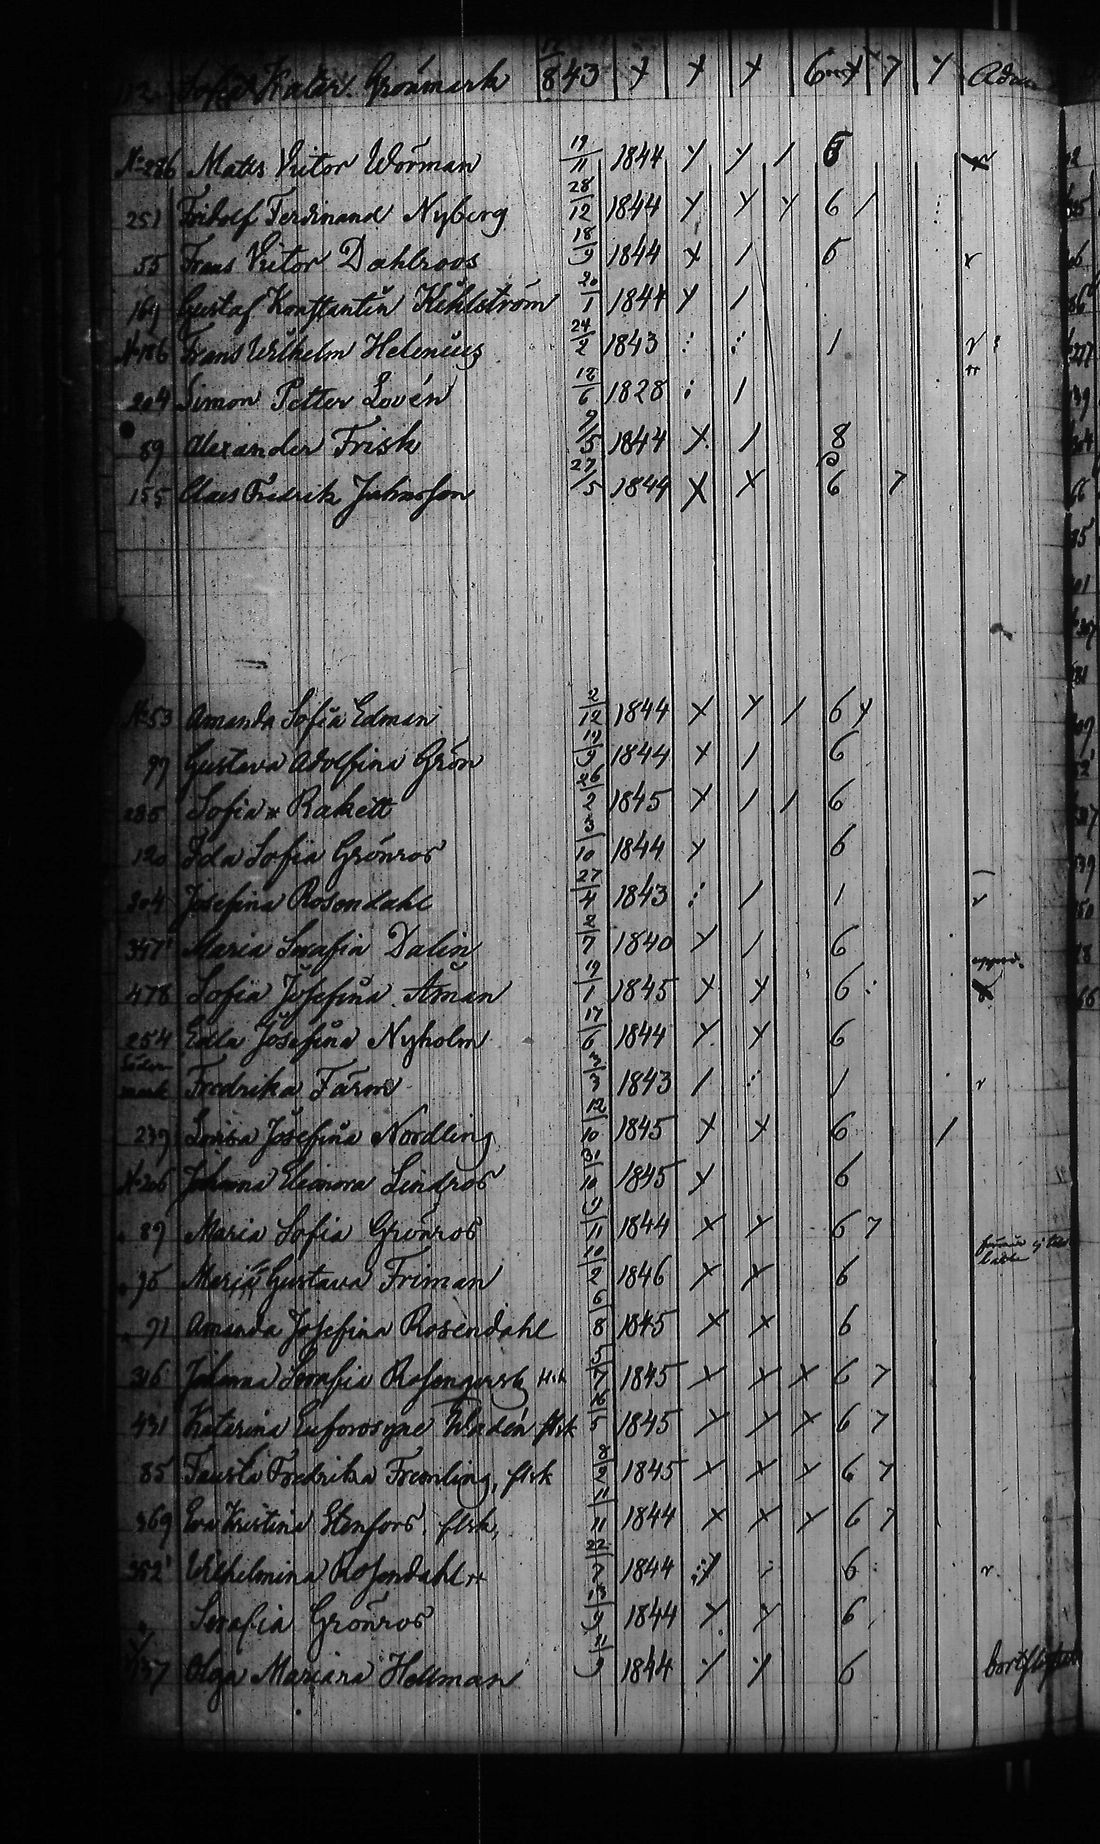 Sofia Katar. Grönmark 843 x x x 6 x 7 y
N 286 Matts Victor Wörman 19/11 1844 y y / 6
251 Fridolf Ferdinand Nyberg 28/12 1844 y y y 6 /
55 Frans Victor Dahlroos 18/9 1844 x / 6 r
169 Gustaf Konstantin Kihlström 20/1 1844 y /
N 186 Frans Wilhelm Helenius 24/2 1843 : : 1 r
204 Simon Petter Lovén 12/6 1828 : /
89 Alexander Frisk 9/5 1844 x / 8
155 Claes Fredrik Johnsson 27/5 1844 x x 6 7
N 53 Amanda Sofia Edman 2/12 1844 x y / 6 y
99 Gustava Adolfina Grön 19/9 1844 x / 6
285 Sofia Rakett 26/2 1845 x / / 6
120 Ida Sofia Grönros 3/10 1844 y 6
304 Josefina Rosendahl 27/4 1843 : / 1 r
347 Maria Serafia Dalin 2/7 1840 y / 6
478 Sofia Josefina Åman 19/1 1845 x y 6 :
254 Edla Josefina Nyholm 17/6 1844 y y 6
Söder-
mark Fredrika Färm 3/3 1843 / : 1 r
239 Lovisa Josefina Nordling 12/10 1845 x x 6 /
N 206 Johanna Eleonora Lindros 31/10 1845 y 6
89 Maria Sofia Grönros 9/11 1844 x y 6 7
95 Maria Gustava Friman 10/2 1846 x x 6
91 Amanda Josefina Rosendahl 6/8 1845 x x 6
316 Johanna Serafia Rosenqvist 5/7 1845 x x x 6 7
431 Katarina Euforosyne Wladén flsk 16/5 1845 y y x 6 7
85 Fausta Fredrika Fremling, flsk 8/2 1845 x x y 6 y
369 Eva Kristina Stenfors, flsk, 11/11 1844 x x y 6 7
352 Wilhelmina Rosendahl 22/7 1844 : 6 r
Serafia Grönros 13/9 1844 y y 6
Olga Mariana Hellman 11/9 1844 y y 6